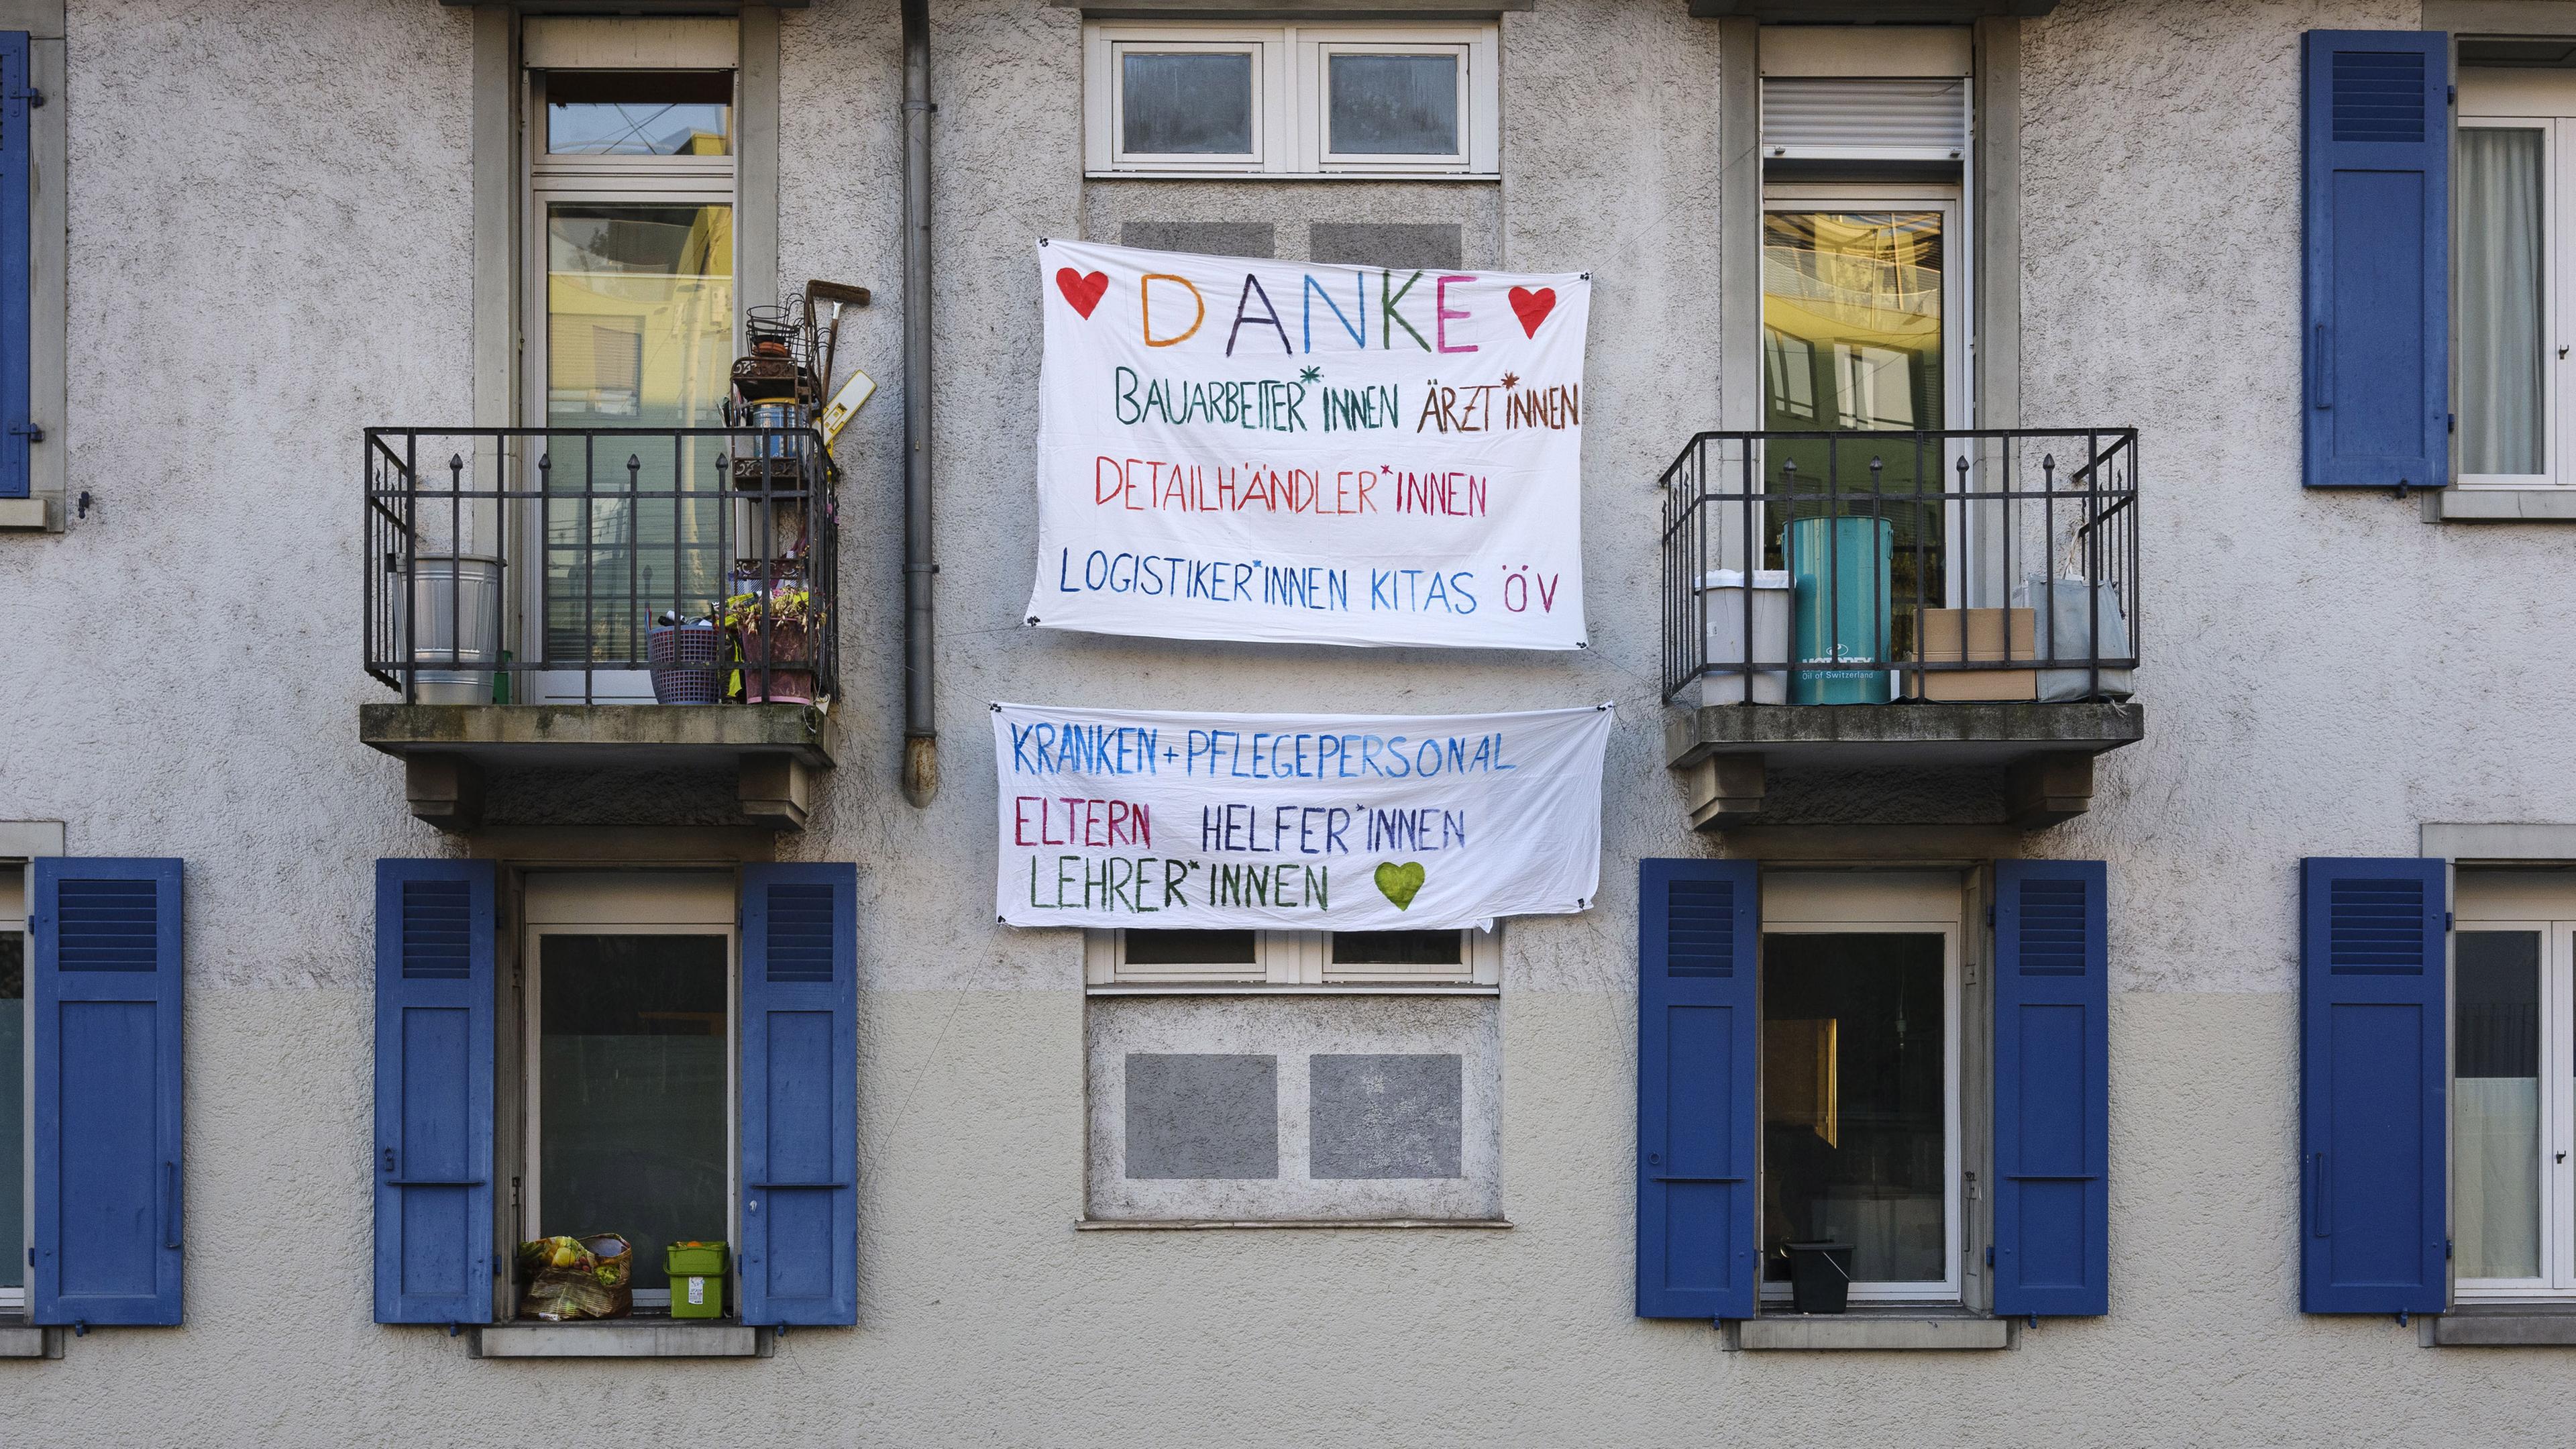 DANKE
BAUARBEITER*INNEN ÄRZT*INNEN
DETAILHÄNDLER*INNEN
LOGISTIKER*INNEN KITAS ÖV
KRANKEN+PFLEGEPERSONAL
ELTERN HELFER*INNEN
LEHRER*INNEN
MOTOREX
Oil of Switzerland